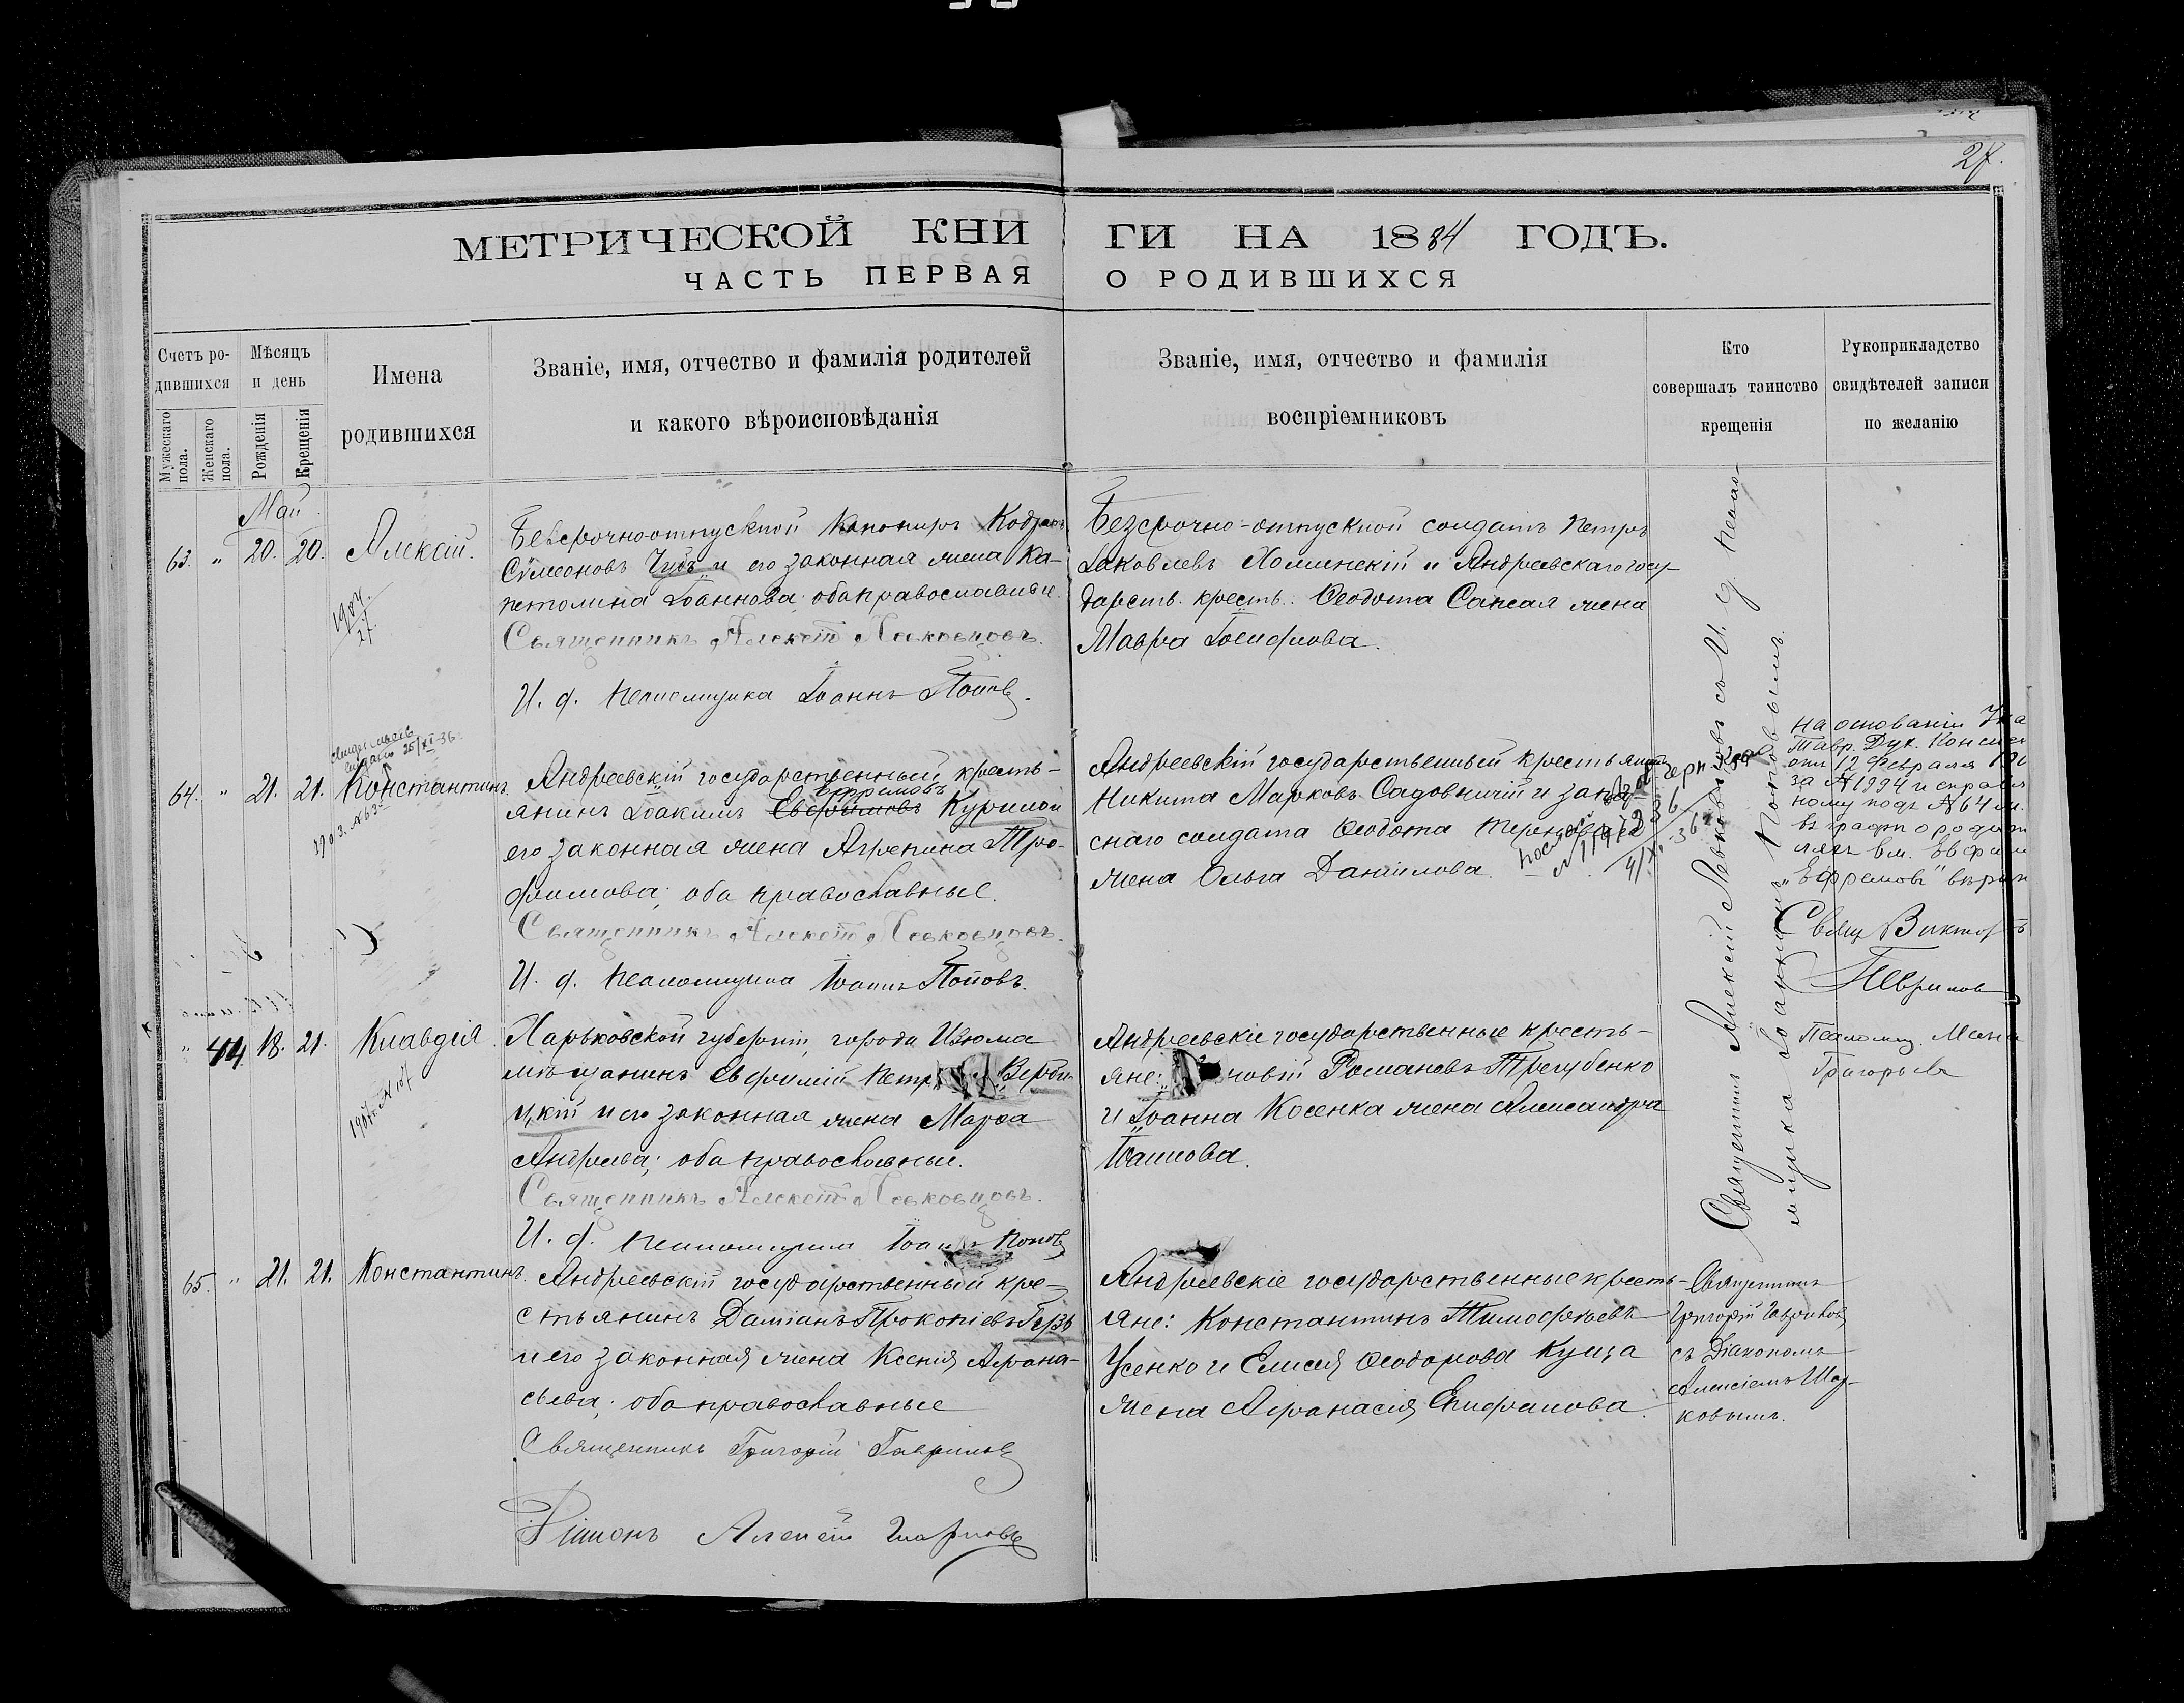 27.
МЕТРИЧЕСКОЙ КНИГИ НА 1884 ГОДЪ.
ЧАСТЬ ПЕРВАЯ О РОДИВШИХСЯ
Счетъ родившихся
Мужескаго пола.
Женскаго пола.
Мѣсяцъ и день
Рожденія
Крещенія
Имена родившихся
Званіе, имя, отчество и фамилія родителей
и какого вѣроисповѣданія
Званіе, имя, отчество и фамилія
воспріемниковъ
Кто
совершалъ таинство
крещенія
Рукоприкладство
свидѣтелей записи
по желанію
Май
63. " 20. 20. Алексій.
Безсрочноотпускной Канониръ Кодратъ
Сѵмеоновъ и его законная жена Ка-
петолина Іоаннова; оба православные.
Священникъ Алексій Левковцовъ.
И. д. псаломщика Іоаннъ Поповъ.
Безсрочно-отпускной солдатъ Петръ
Іаковлевъ Холменскій и Андреевскаго госу-
дарств. крест.: Ѳеодота Сапсая жена
Мавра Іосифова.
64. " 21. 21. Константинъ.
25/XI-36
1903. №63
Андреевскій государственный кресть-
Ефремовъ
янинъ Іоакимъ Евфимовъ Курилой
его законная жена Агрепина Тро-
фимова; оба православные.
Священникъ Алексій Левковцовъ.
И. д. псаломщика Іоаннъ Поповъ.
Андреевскій государственный крестьянинъ
Никита Марковъ Садовничій и запас-
снаго солдата Ѳеодота
жена Ольга Даніилова.
на основаніи Ука
Тавр. Дух. Консис
отъ 12 Февраля
за №1994 и
ному подъ №64 м.
въ графѣ о родит
вм. Евфим
"Ефремовъ" вѣрн
Свящ Виктор
Псаломщ.
Григорьев
" 44 18. 21. Клавдія.
1907 № 107
Харьковской губерніи, города Изюма
мѣщанинъ Евфимій Петр Верби
цкій и его законная жена Марѳа
Андреева; оба православные.
Священникъ Алексій Левковцовъ.
И. д. псаломщика Іоаннъ Поповъ
Андреевскіе государственные кресть-
яне: Романовъ Трегубенко
и Іоанна Косенка жена Александра
Іоаннова.
Священникъ Алексій Левковцовъ съ И. д. псало-
мщика Іоанномъ Поповымъ.
65. " 21. 21. Константинъ.
Андреевскій государственный кре-
стьянинъ Даміанъ Прокопіевъ
и его законная жена Ксенія Аѳана-
сьева; оба православные
Священникъ Григорій Гавриловъ
Діаконъ Алексій Шарковъ
Андреевскіе государственные кресть-
яне: Константинъ Тимоѳеевъ
Усенко и Елисея Ѳеодорова Куца
жена Аѳанасія Епифанова.
Священникъ
Григорій Гавриловъ
съ Діакономъ
Алексіемъ Шар-
ковымъ.